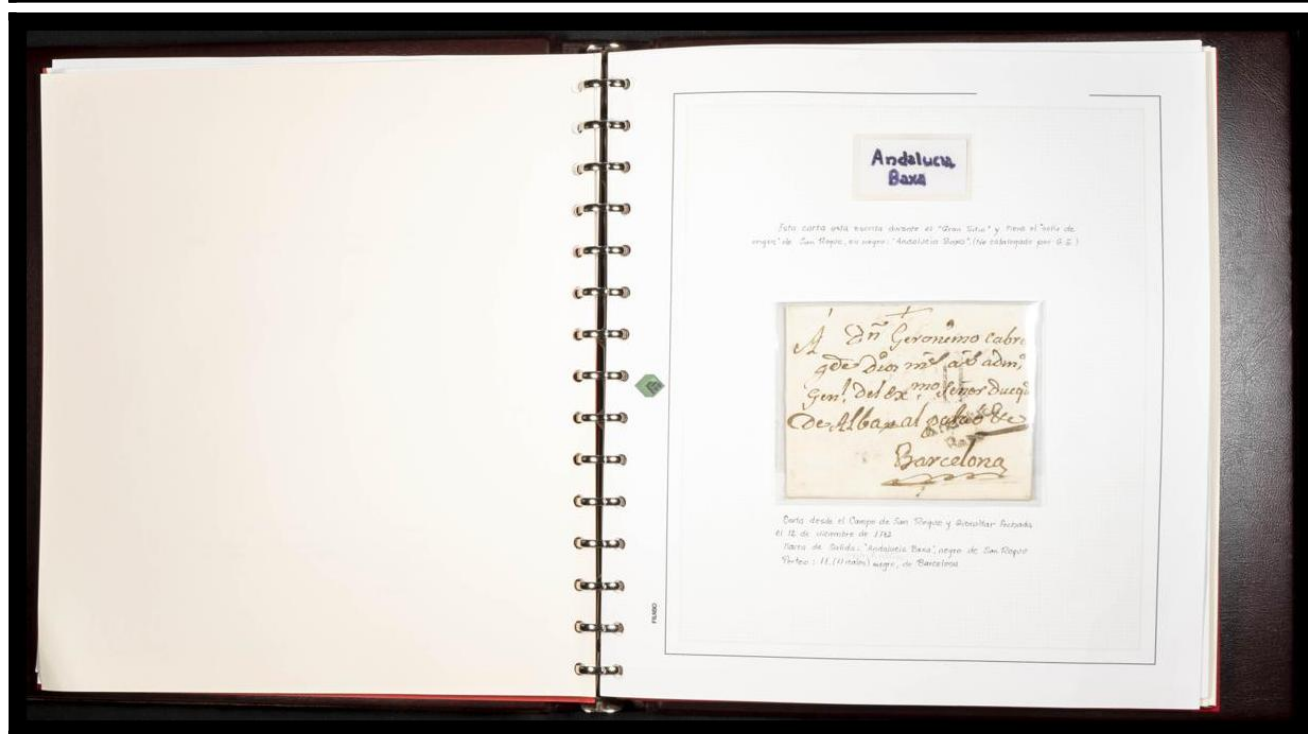 Andalucia
Baxa
Esta carta está escrita durante el "Gran Sitio" y tiene el "sello de
origen" de San Roque, en negro: "Andalucia Baxa". (No catalogado por G.S.)
A Dn Geronimo Cabre
gde Dios ms as adm,
Genl. Del Exmo. Señor Dueq
de Alba, al
Barcelona
Carta desde el Campo de San Roque y Gibraltar fechada
el 12 de diciembre de 1782
Marca de Salida: "Andalucia Baxa", negro de San Roque
Porteo: 11 (11 reales) negro, de Barcelona
FILABO